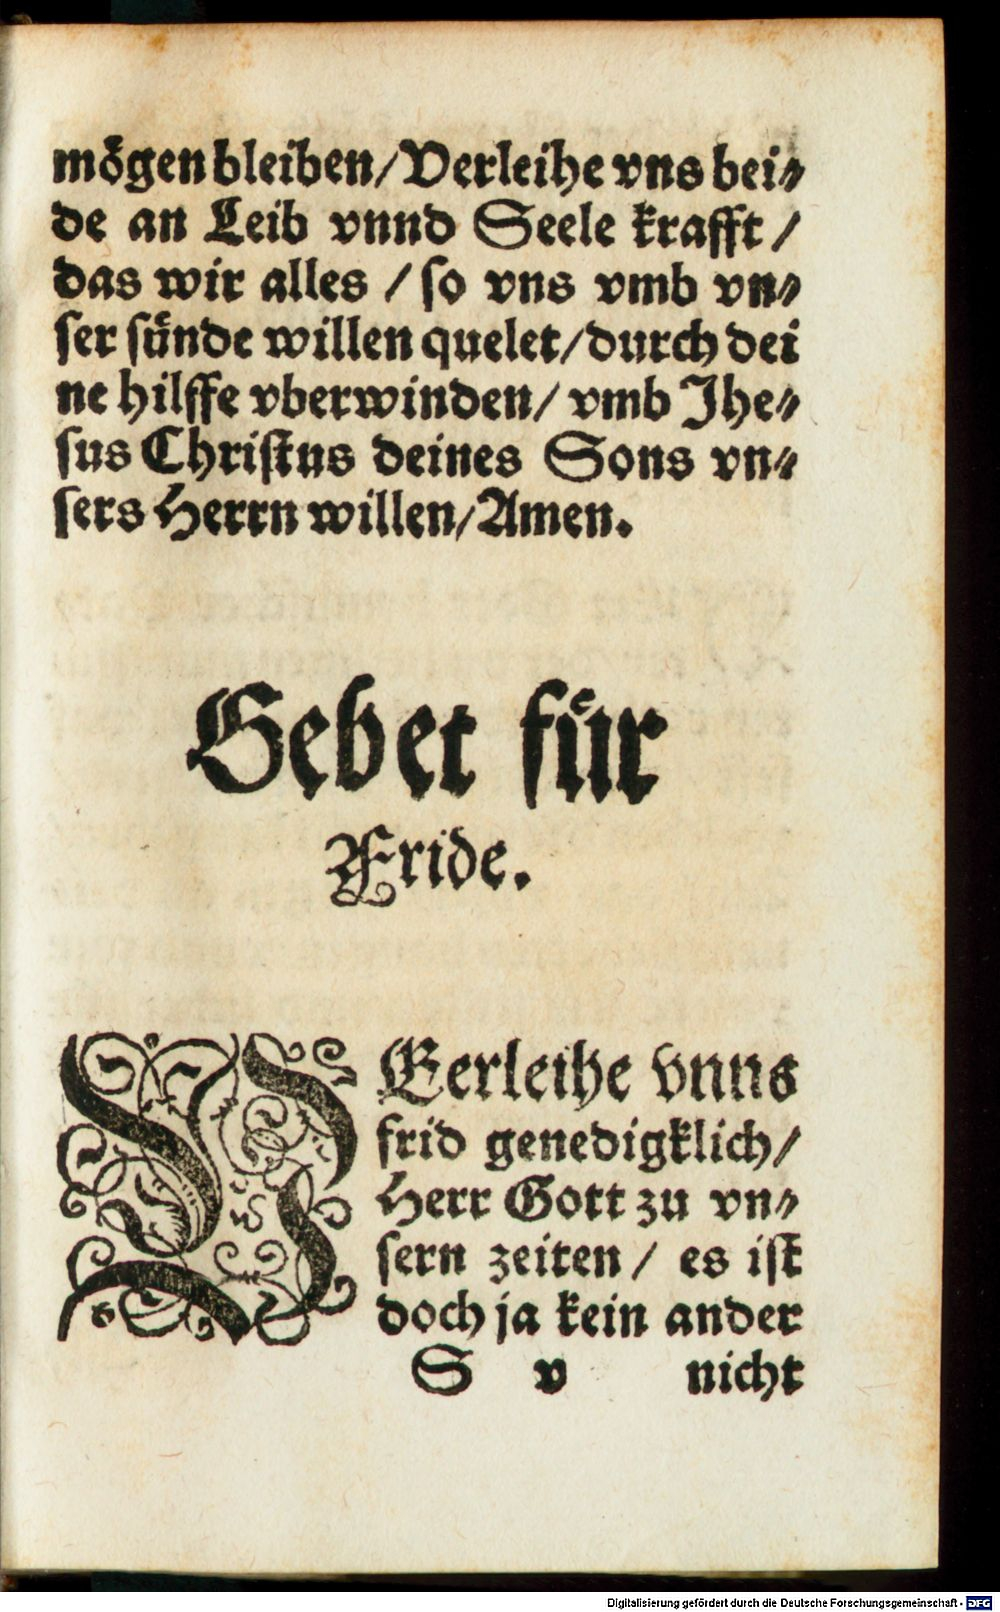 mögen bleiben/Verleihe vns bei⸗
de an Leib vnnd Seele krafft/
das wir alles/so vns vmb vn⸗
ser sünde willen quelet/durch dei
ne hilffe vberwinden/vmb Jhe⸗
sus Christus deines Sons vn⸗
sers Herrn willen/Amen.
Gebet für
Fride.
VEerleihe vnns
frid genedigklich/
Herr Gott zu vn⸗
sern zeiten/ es ist
doch ja kein ander
S v nicht
Digitalisierung gefördert durch die Deutsche Forschungsgemeinschaft - DFG